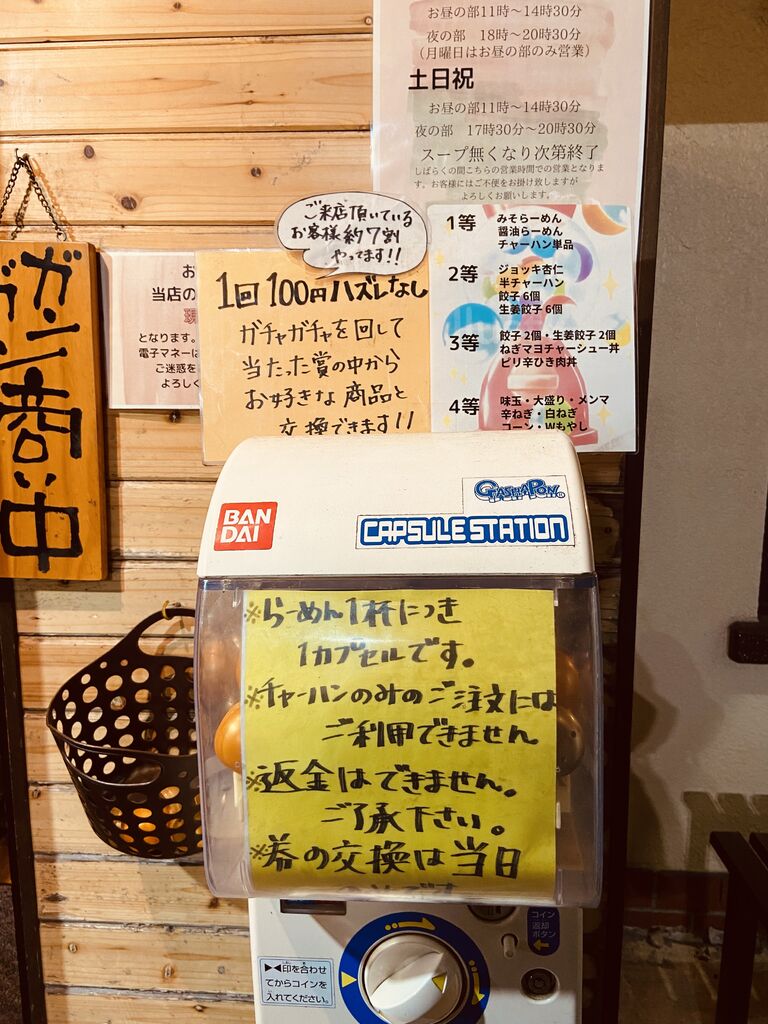 お昼の部11時～14時30分
夜の部 18時～20時30分
（月曜日はお昼の部のみ営業）
土日祝
お昼の部11時～14時30分
夜の部 17時30分～20時30分
スープ無くなり次第終了
しばらくの間こちらの営業時間での営業となりま
す。お客様にはご不便をお掛け致しますが
よろしくお願いします。
ご来店頂いている
お客様約7割
やってます!!
1回100円ハズレなし
ガチャガチャを回して
当たった賞の中から
お好きな商品と
交換できます!!
1等 みそらーめん
醤油らーめん
チャーハン単品
2等 ジョッキ杏仁
半チャーハン
餃子6個
生姜餃子6個
3等 餃子2個・生姜餃子2個
ねぎマヨチャーシュー丼
ピリ辛ひき肉丼
4等 味玉・大盛り・メンマ
辛ねぎ・白ねぎ
コーン・Wもやし
お
当店の
となります。
電子マネーは
ご迷惑を
よろしく
商い中
BAN
DAI
GASHAPON
CAPSULE STATION
※らーめん1杯につき
1カプセルです。
※チャーハンのみのご注文には
ご利用できません
※返金はできません。
ご了承下さい。
※券の交換は当日
コイン
返却
ボタン
▶◀印を合わせ
てからコインを
入れてください。